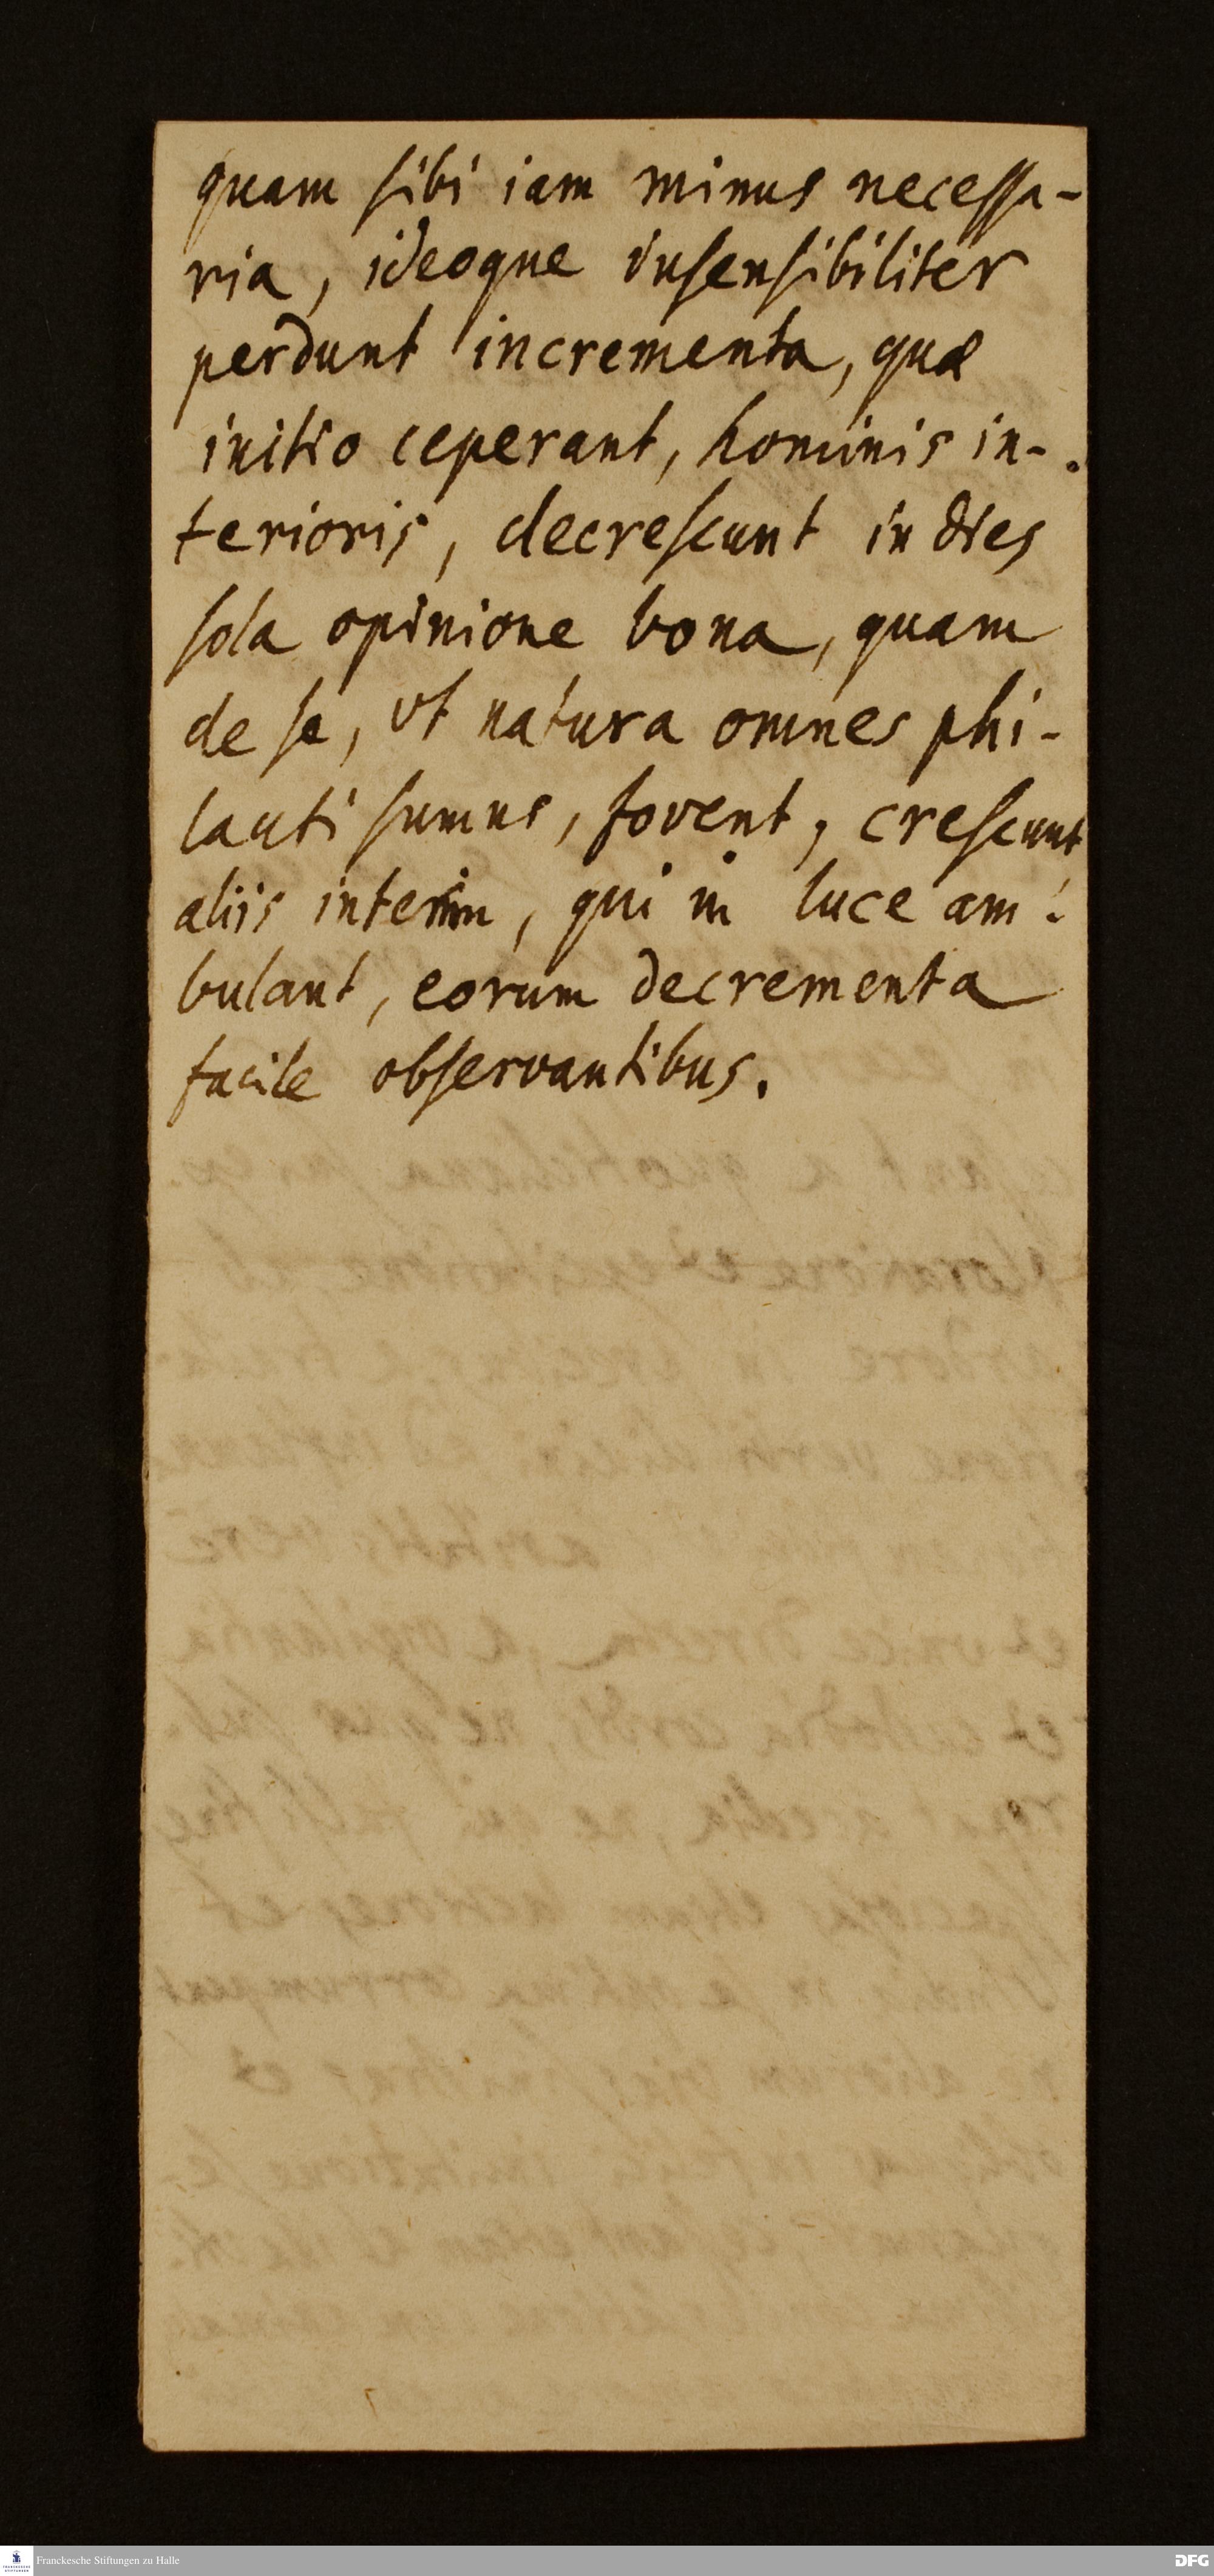 quam sibi iam minus necessa-
ria, ideoque insensibiliter
perdunt incrementa, quæ
initio ceperant, hominis in-
terioris, decrescunt in dies
sola opinione bona, quam
de se, ut natura omnes phi-
lauti sumus, fovent, crescunt
aliis interim, qui in luce am-
bulant, eorum decrementa
facile observantibus.
Franckesche Stiftungen zu Halle
DFG